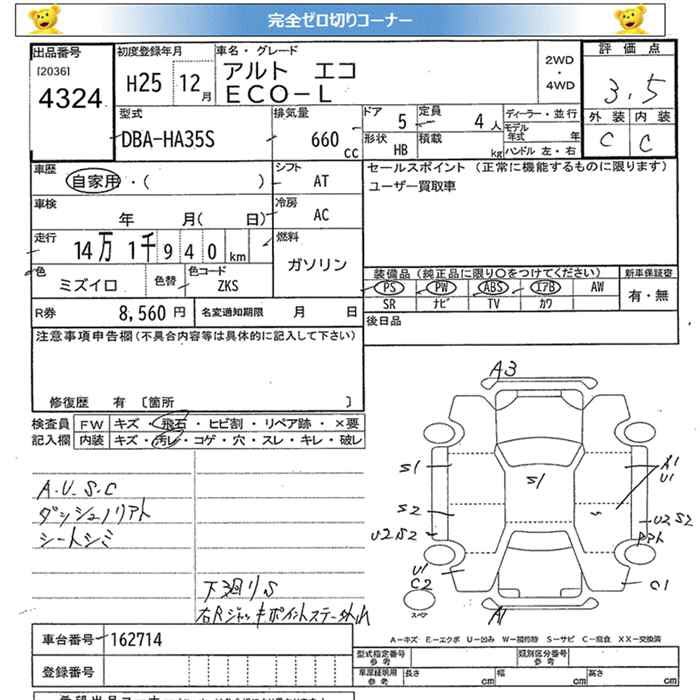 完全ゼロ切りコーナー
出品番号
[2036]
4324
初度登録年月
H25 12月
車名・グレード
アルト エコ
ECO-L
2WD
・
4WD
評価点
3.5
外装 内装
C C
型式
DBA-HA35S
排気量
660 cc
ドア 5
定員 4 人
形状 HB
積載 kg
ディーラー・並行
モデル年式 年
ハンドル 左・右
車歴
自家用・( )
シフト
AT
セールスポイント (正常に機能するものに限ります)
ユーザー買取車
車検
年 月( 日)
冷房
AC
走行
14万 1千 9 4 0 km
燃料
ガソリン
色
ミズイロ
色替
色コード
ZKS
装備品 (純正品に限り○をつけてください)
新車保証書
PS PW ABS エアB AW
SR ナビ TV カワ
有・無
R券 8,560 円
名変通知期限 月 日
後日品
注意事項申告欄(不具合内容等は具体的に記入して下さい)
修復歴 有 〔箇所 〕
検査員 FW キズ・飛石・ヒビ割・リペア跡・×要
記入欄 内装 キズ・汚レ・コゲ・穴・スレ・キレ・破レ
A3
S1
S1
U1
S2
U2S2
U2S2
U1
C2
C1
スペア
A1
A.U.S.C
ダッシュノリアト
シートシミ
下廻りS
車台番号 162714
登録番号
A=キズ E=エクボ U=凹み W=補修跡 S=サビ C=腐食 XX=交換済
型式指定番号
参考
類別区分番号
参考
車庫証明用
参考
長さ cm 幅 cm 高さ cm